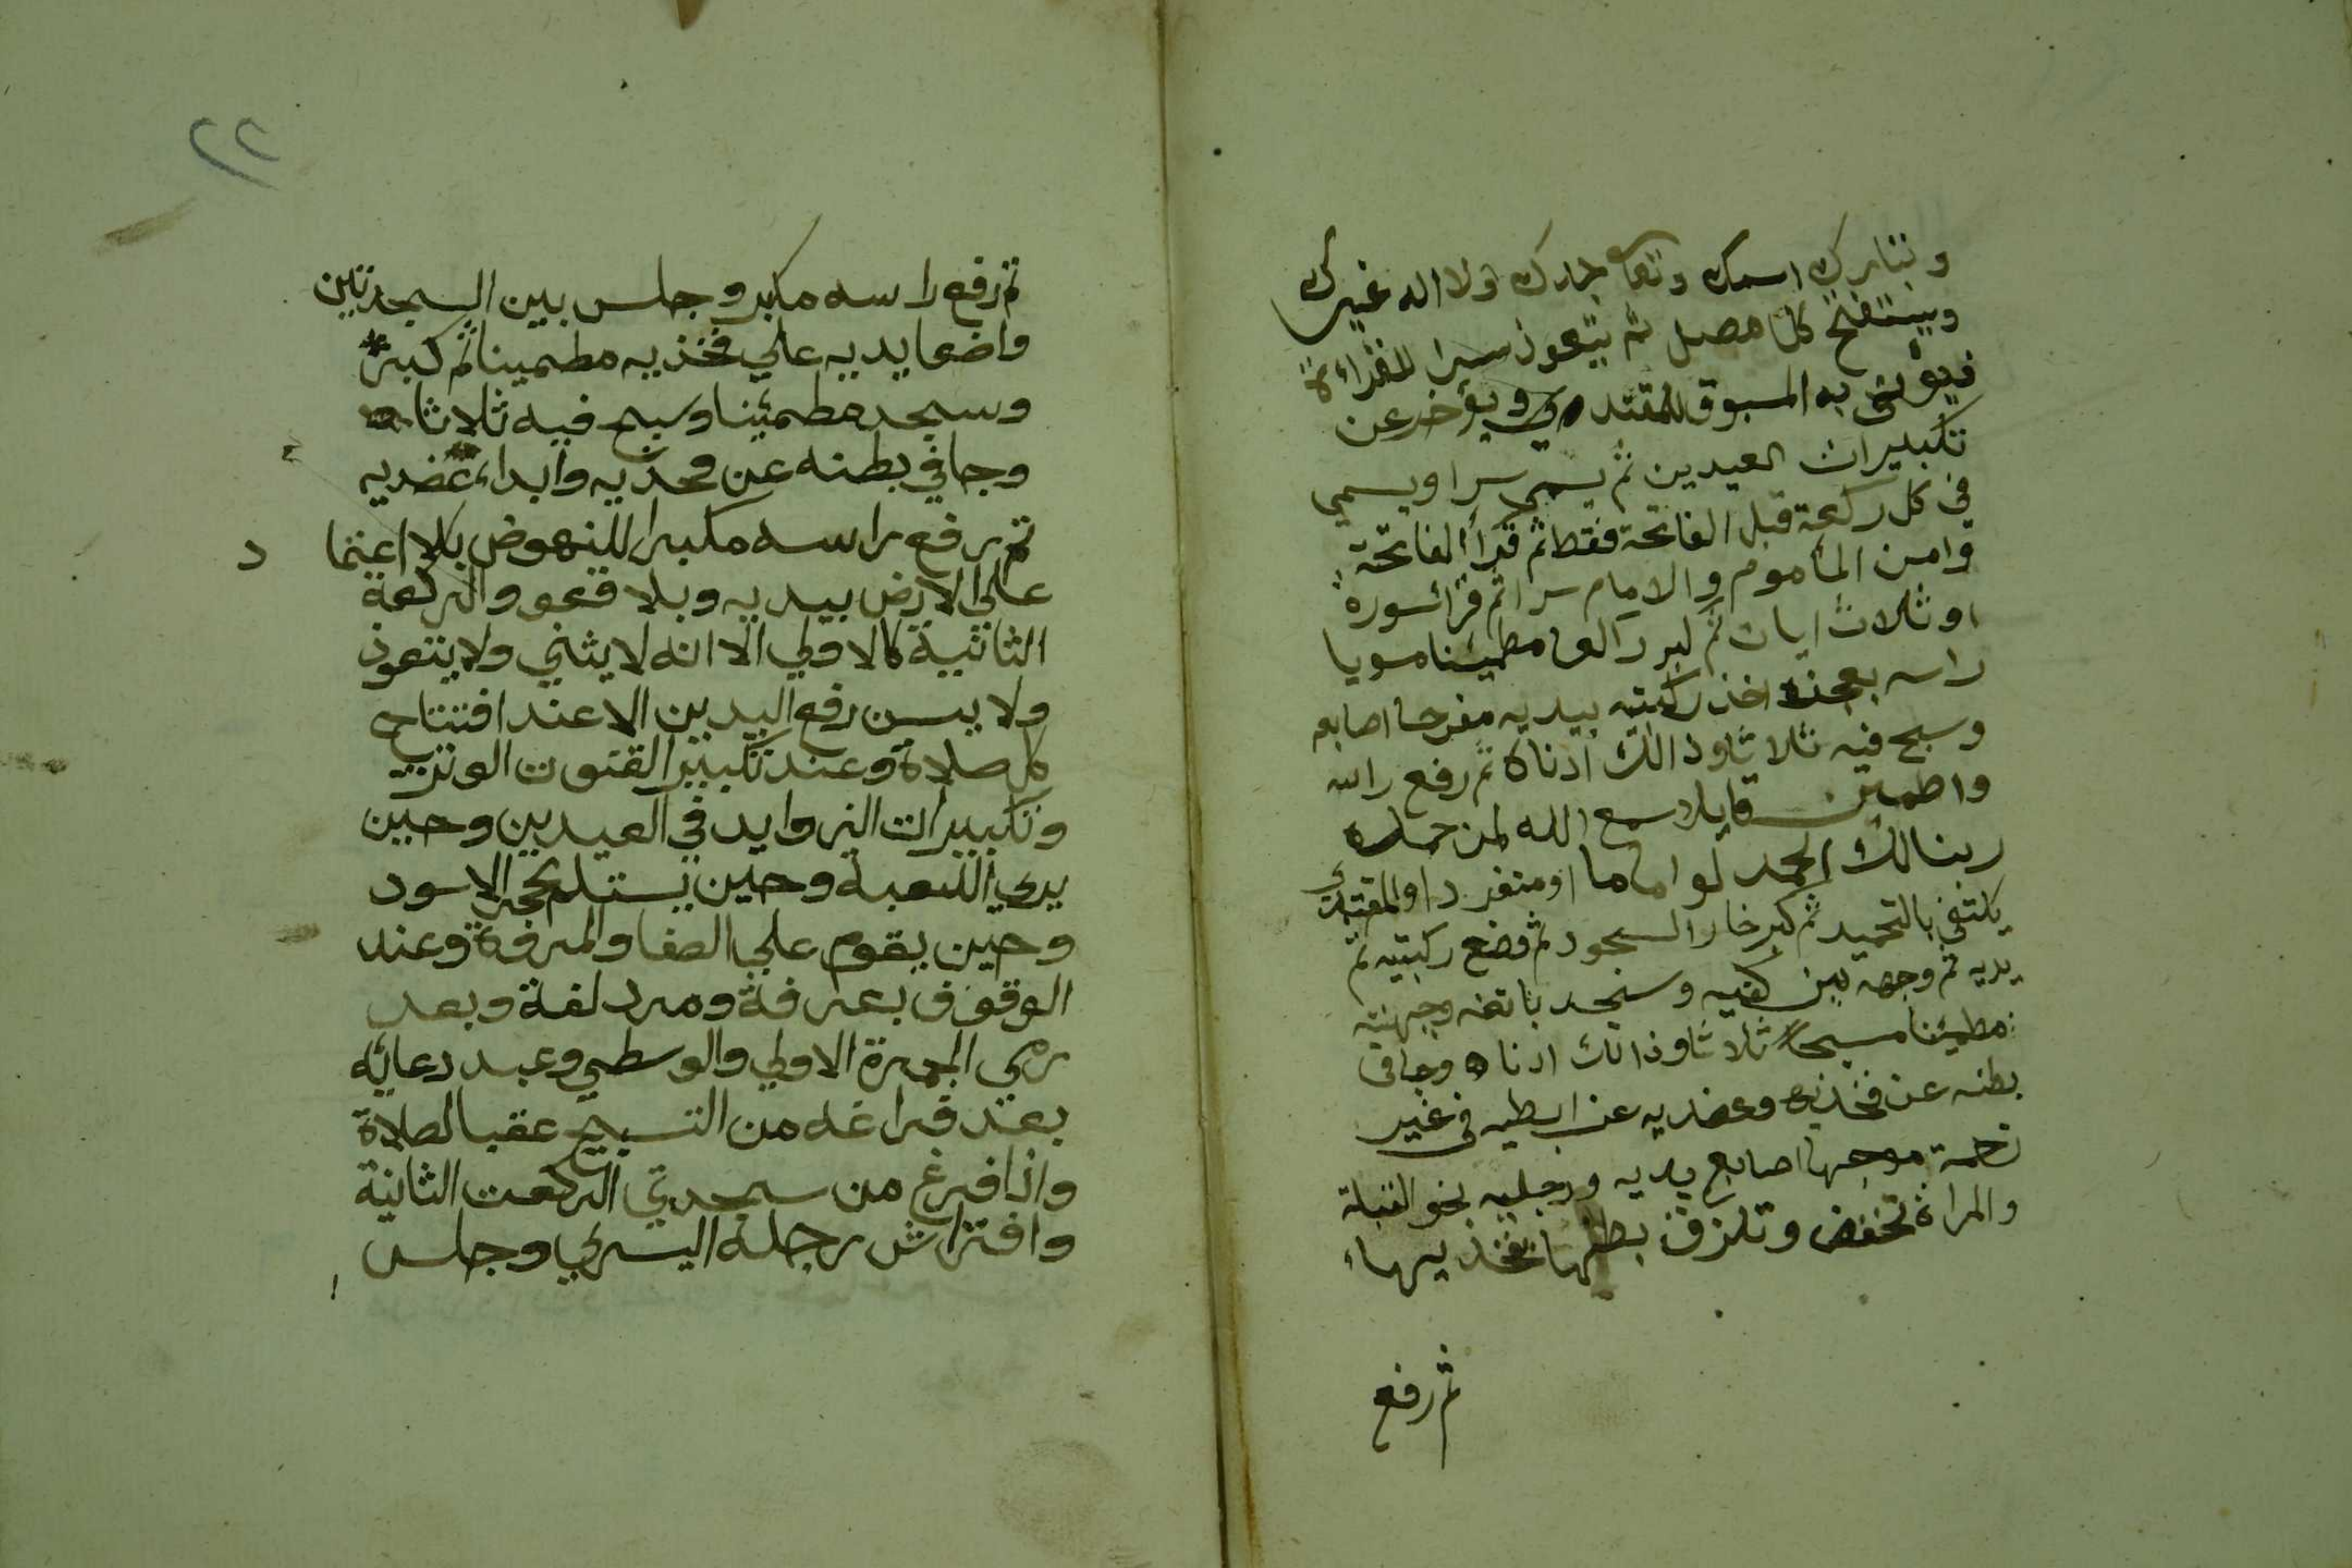 وتبارك اسمك وتعا جدك ولا اله غيرك
ويستفتح كل مصل ثم يتعوذ سرا للقراءة
فيؤتى به المسبوق للمقتدي ويؤخر عن
تكبيرات العيدين ثم يسمي سرا ويسمي
في كل ركعة قبل الفاتحة فقط ثم قرأ الفاتحة
وامن المأموم والامام سرا ثم قرأ سورة
او ثلاث ايات ثم كبر راكعا مطمئنا مسويا
راسه بعجزه اخذ ركبتيه بيديه مفرجا اصابعه
وسبح فيه ثلاثا وذالك ادناه ثم رفع راسه
واطمئن قايلا سمع الله لمن حمده
ربنا لك الحمد لو اماما او منفردا والمقتدي
يكتفي بالتحميد ثم كبر خارا السجود ثم وضع ركبتيه ثم
يديه ثم وجهه بين كفيه وسجد بانفه وجبهته
مطمئنا مسبحا ثلاثا وذالك ادناه وجافى
بطنه عن فخذيه وعضديه عن ابطيه في غير
زحمة موجها اصابع يديه ورجليه نحو القبلة
والمراة تخفض وتلزق بطنها بفخذيها
ثم رفع
٢٢
ثم رفع راسه مكبر وجلس بين السجدتين
واضعا يديه علي فخذيه مطمينا ثم كبر
وسجد مطمئنا وسبح فيه ثلاثا
وجافي بطنه عن فخذيه وابداء عضديه
ثم رفع راسه مكبرا للنهوض بلا اعتما د
علي الارض بيديه وبلا قعو والركعة
الثانية كالاولي الا انه لا يثني ولا يتعوذ
ولا يسن رفع اليدين الا عند افتتاح
كل صلاة وعند تكبير القنوت الوتر
وتكبيرات الزوايد في العيدين وحين
يري الكعبة وحين يستلم الحجر الاسود
وحين يقوم علي الصفا والمروة وعند
الوقوف بعرفة ومزدلفة وبعد
رمي الجمرة الاولي والوسطي وعند دعائه
بعد فراغه من التسبيح عقب الصلاة
واذا فرغ من سجدتي الركعت الثانية
وافتراش رجله اليسري وجلس